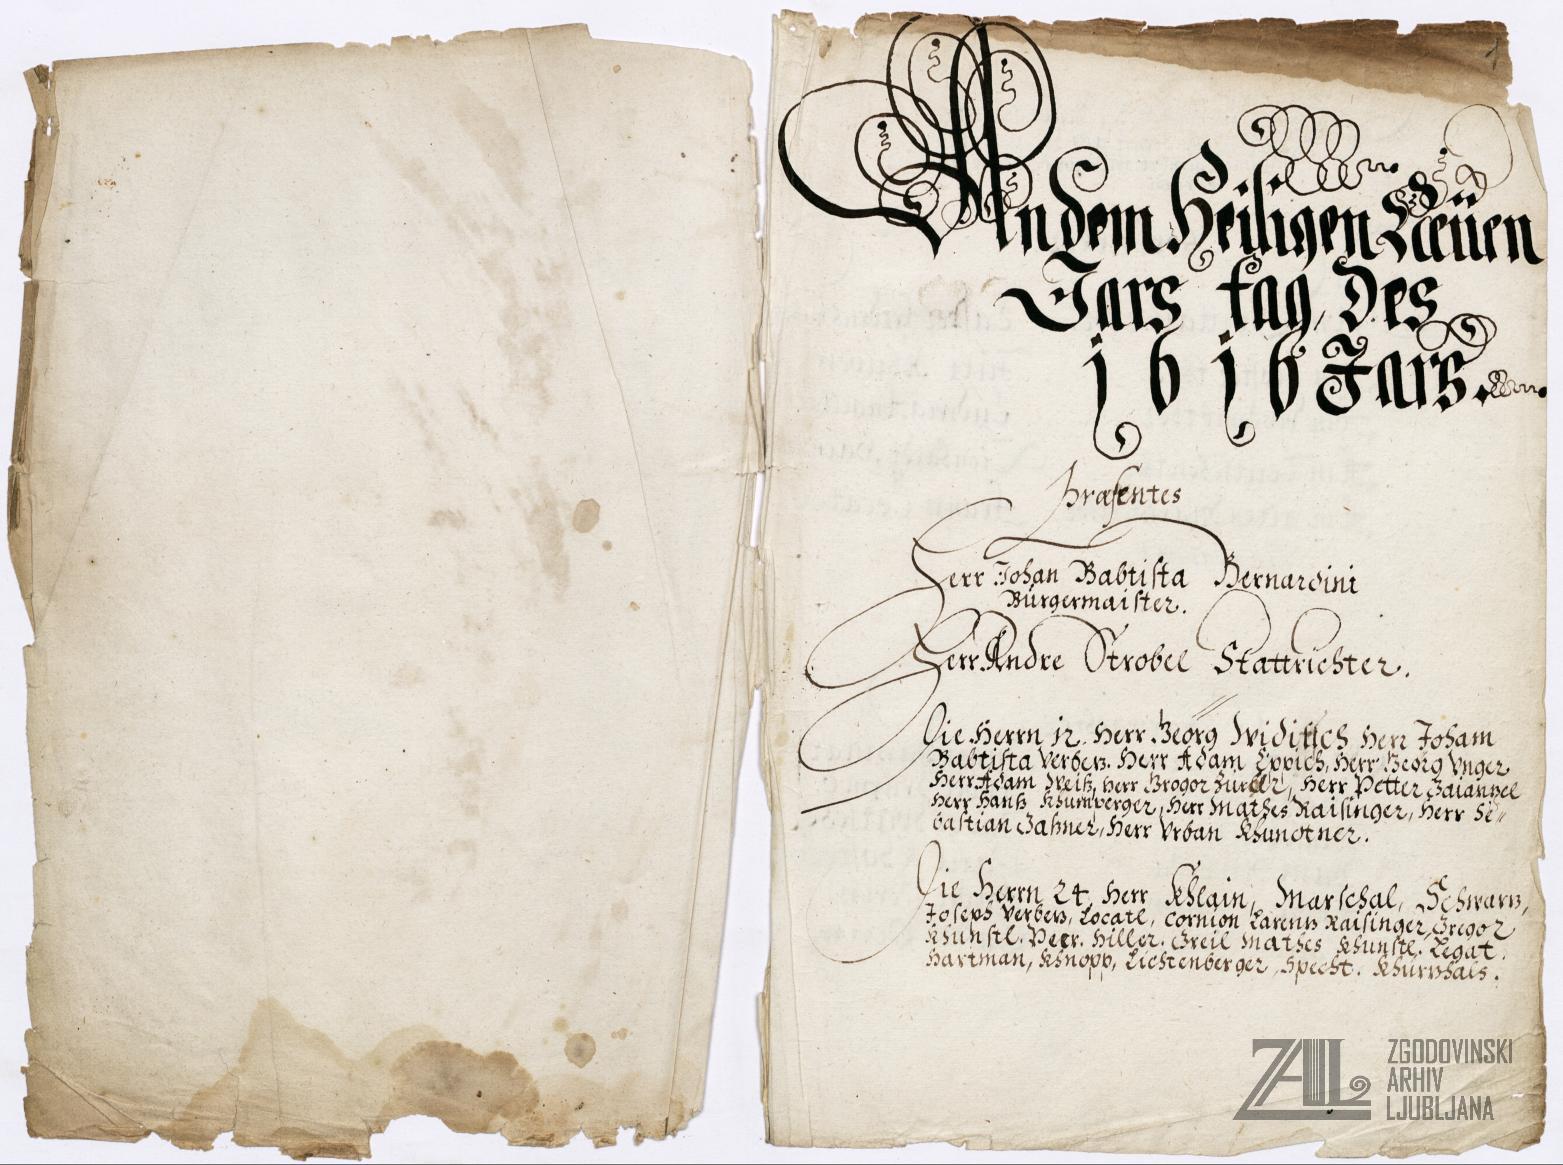 An dem Heiligen Neuen
Jars tag, des
1616 Jars.
Præsentes
Herr Johan Babtista Bernardini
Bürgermaister.
Herr Andre Strobel Stattrichter.
Die Herrn 12. Herr Georg Widitsch Herr Joham
Babtista Verbez. Herr Adam Eppich, Herr Georg Vnger
Herr Adam Weiß, Herr Gregor Herr Petter
Herr Hanß Khumperger, Herr Mathes Raisinger, Herr Se„
bastian Zahner, Herr Vrban Khundtner.
Die Herrn 24, Herr Khlain, Marschal, Schwarz,
Joseph Verbez, Locatl, Cornion Larenz Raisinger, Gregor
Khunstl. Petr. Hiller. Greil Mathes Khunstl. Legat.
Hartman, Khnopp, Liechtenberger, Specht. Khurzhals.
ZAL
ZGODOVINSKI
ARHIV
LJUBLJANA